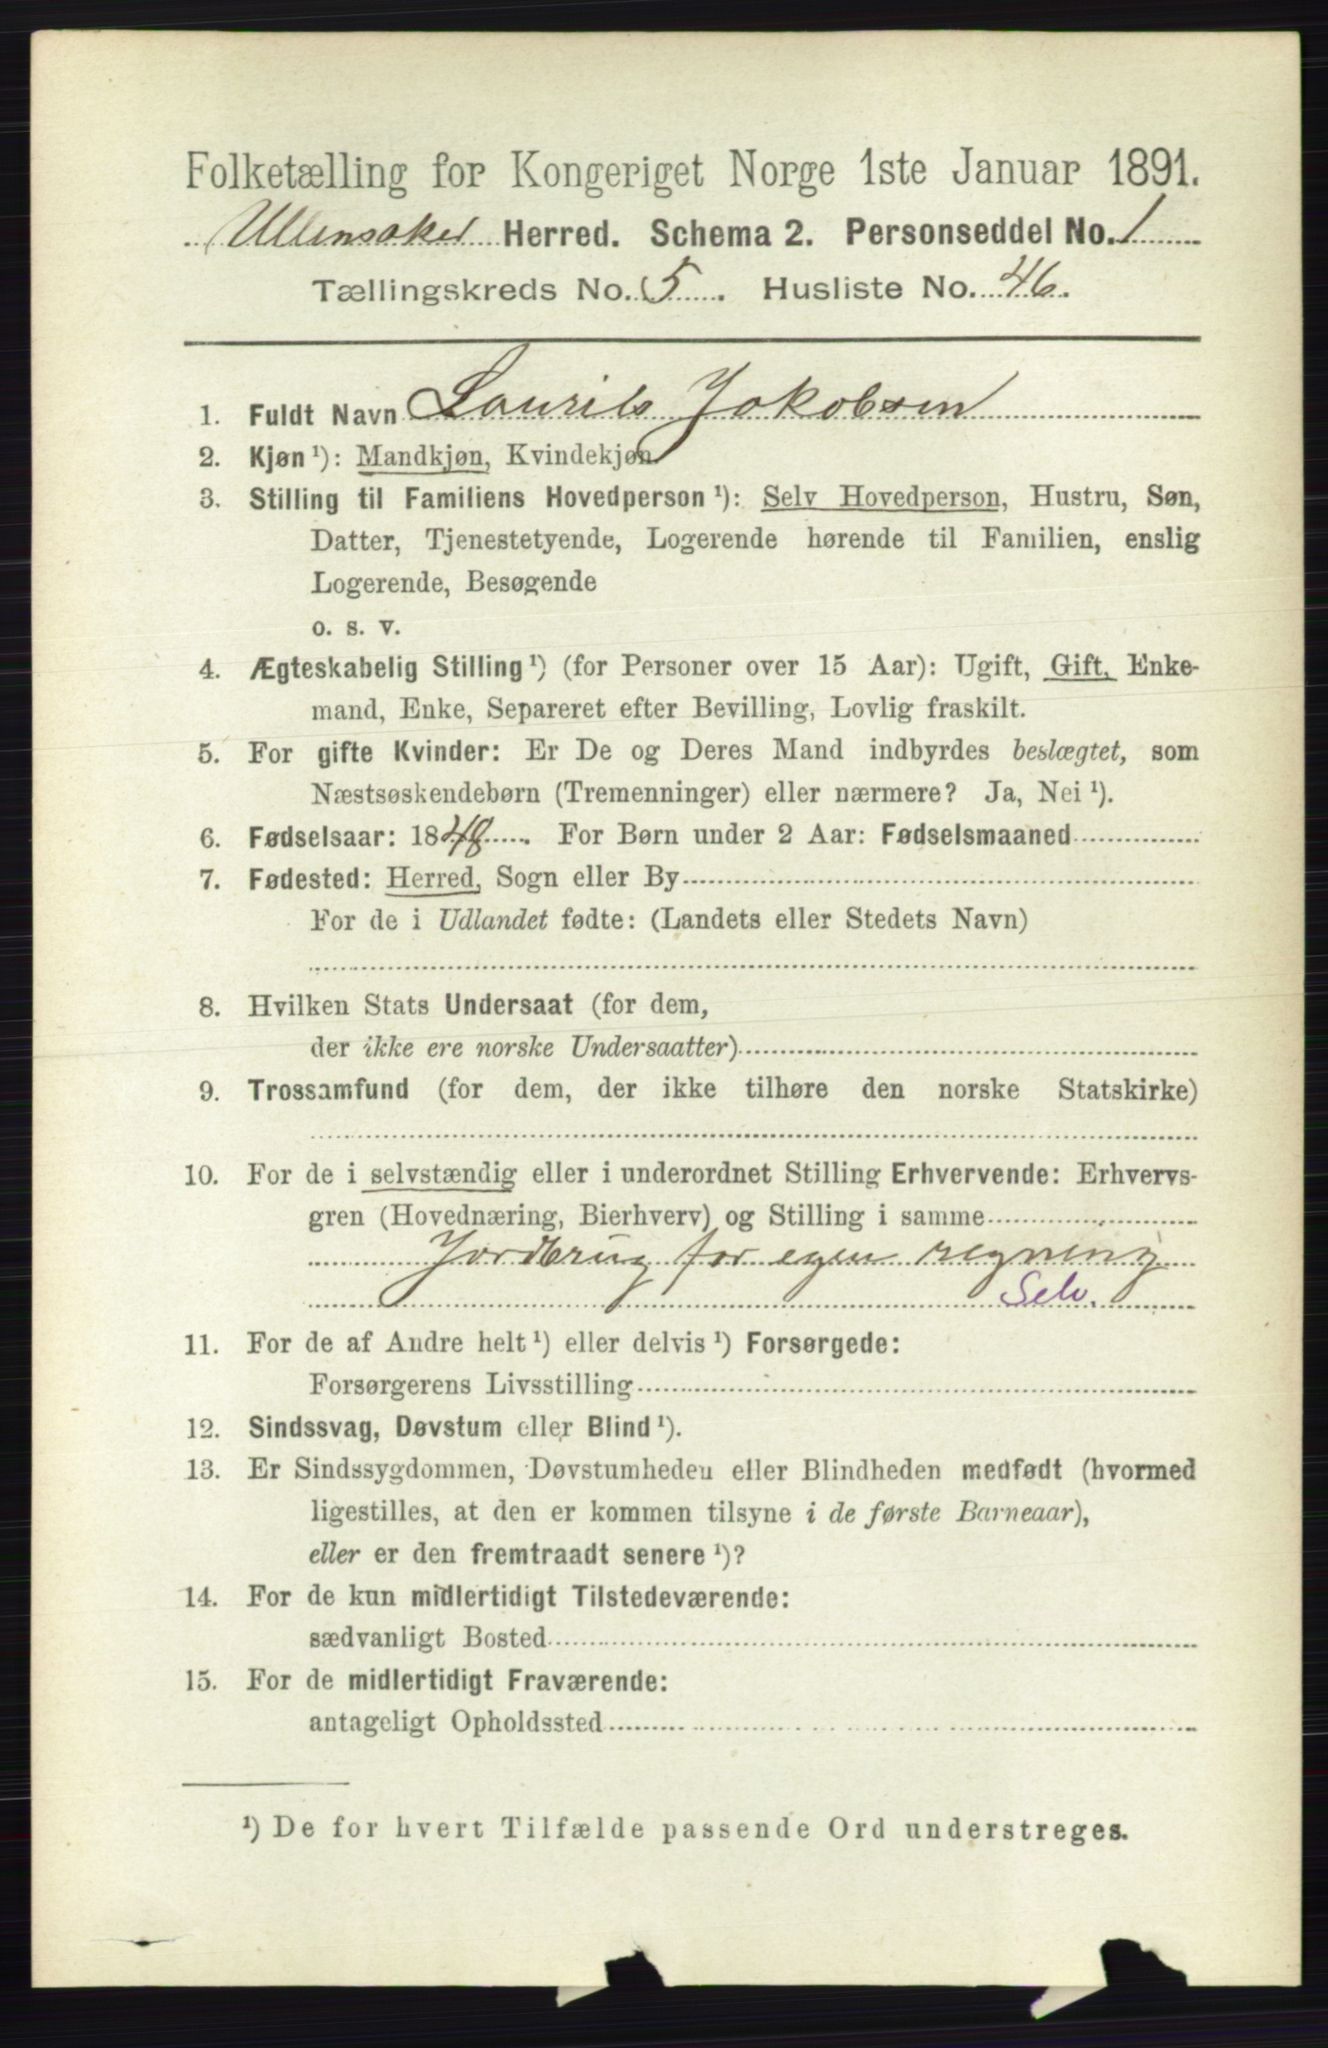 Folketælling for Kongeriget Norge 1ste Januar 1891.
Ullensaker Herred. Schema 2. Personseddel No. 1
Tællingskreds No. 5. Husliste No. 46.
1. Fuldt Navn Laurits Jakobsen
2. Kjøn ¹): Mandkjøn, Kvindekjøn.
3. Stilling til Familiens Hovedperson ¹): Selv Hovedperson, Hustru, Søn,
Datter, Tjenestetyende, Logerende hørende til Familien, enslig
Logerende, Besøgende
o. s. v.
4. Ægteskabelig Stilling ¹) (for Personer over 15 Aar): Ugift, Gift, Enke-
mand, Enke, Separeret efter Bevilling, Lovlig fraskilt.
5. For gifte Kvinder: Er De og Deres Mand indbyrdes beslægtet, som
Næstsøskendebørn (Tremenninger) eller nærmere? Ja, Nei ¹).
6. Fødselsaar: 1848. For Børn under 2 Aar: Fødselsmaaned
7. Fødested: Herred, Sogn eller By
For de i Udlandet fødte: (Landets eller Stedets Navn)
8. Hvilken Stats Undersaat (for dem,
der ikke ere norske Undersaatter)
9. Trossamfund (for dem, der ikke tilhøre den norske Statskirke)
10. For de i selvstændig eller i underordnet Stilling Erhvervende: Erhvervs-
gren (Hovednæring, Bierhverv) og Stilling i samme
Jordbrug for egen regning
Selv.
11. For de af Andre helt ¹) eller delvis ¹) Forsørgede:
Forsørgerens Livsstilling
12. Sindssvag, Døvstum eller Blind ¹).
13. Er Sindssygdommen, Døvstumheden eller Blindheden medfødt (hvormed
ligestilles, at den er kommen tilsyne i de første Barneaar),
eller er den fremtraadt senere ¹)?
14. For de kun midlertidigt Tilstedeværende:
sædvanligt Bosted
15. For de midlertidigt Fraværende:
antageligt Opholdssted
¹) De for hvert Tilfælde passende Ord understreges.